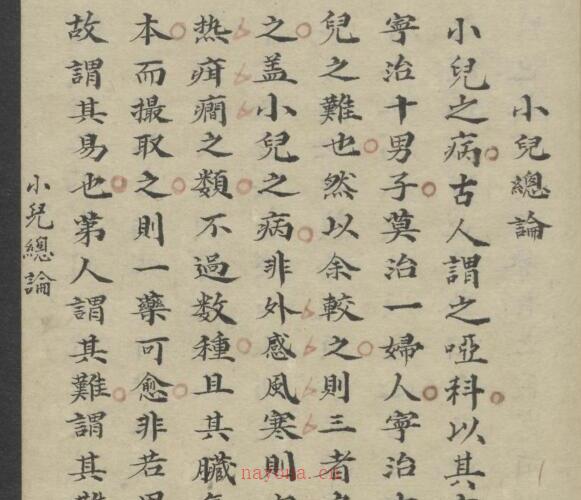 小兒總論
小兒之病古人謂之啞科以其
寧治十男子莫治一婦人寧治
兒之難也然以余較之則三者
之盖小兒之病非外感風寒則
热疳癎之類不過数種且其臟
本而撮取之則一藥可愈非若
故謂其易也第人謂其難謂其
小兒總論
nayona.cn